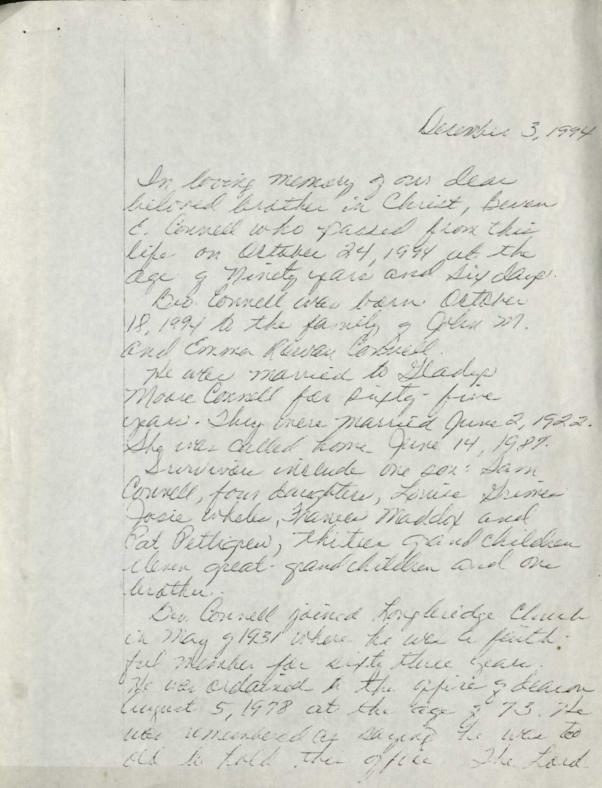 December 3, 1994
In loving memory of our dear
beloved brother in Christ, Beven
E. Connell who passed from this
life on October 24, 1994 at the
age of Ninety years and six days.
Bro. Connell was born October
18, 1994 to the family of John M.
and Emma Rowan Connell.
He was married to Gladys
Moore Connell for sixty-five
years. They were married June 2, 1922.
She was called home June 14, 1987.
Survivors include one son: Sam
Connell, four daughters, Louise Grimes
Josie Wheler, Frances Maddox and
Pat Pettigrew, thirteen grandchildren
eleven great-grandchildren and one
brother.
Bro. Connell joined Longbridge Church
in May of 1931 where he was a faith-
ful member for sixty three years.
He was ordained to the office of deacon
August 5, 1978 at the age of 73. He
was remembered as saying he was too
old to hold the office. The Lord